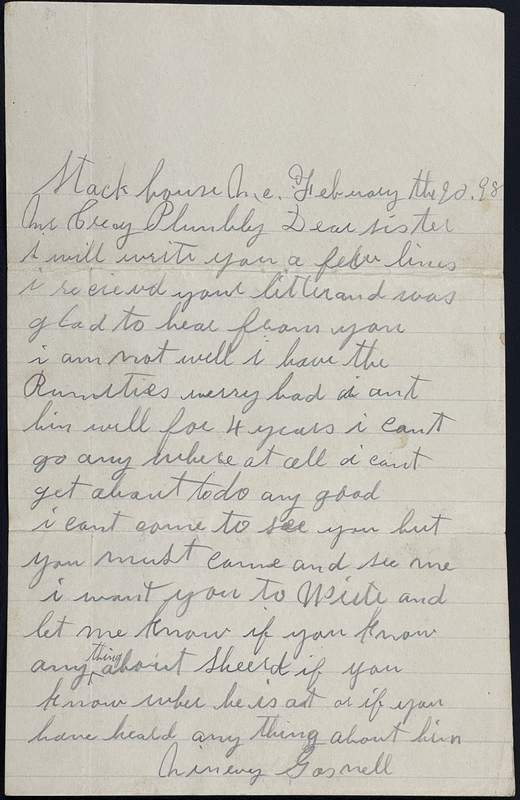 Stack house N.C. February the 20. 98
Mr Creey Plumbly Dear sister
i will write you a few lines
i recieevd your litter and was
glad to hear from you
i am not well i have the
Rumities verry bad i ant
bin well for 4 years i cant
go any where at all i cant
get about to do any good
i cant come to see you but
you must come and see me
i want you to Write and
let me know if you know
any thing about Sheerd if you
know wher he is at or if you
have heard any thing about him
Ninevy Gosnell